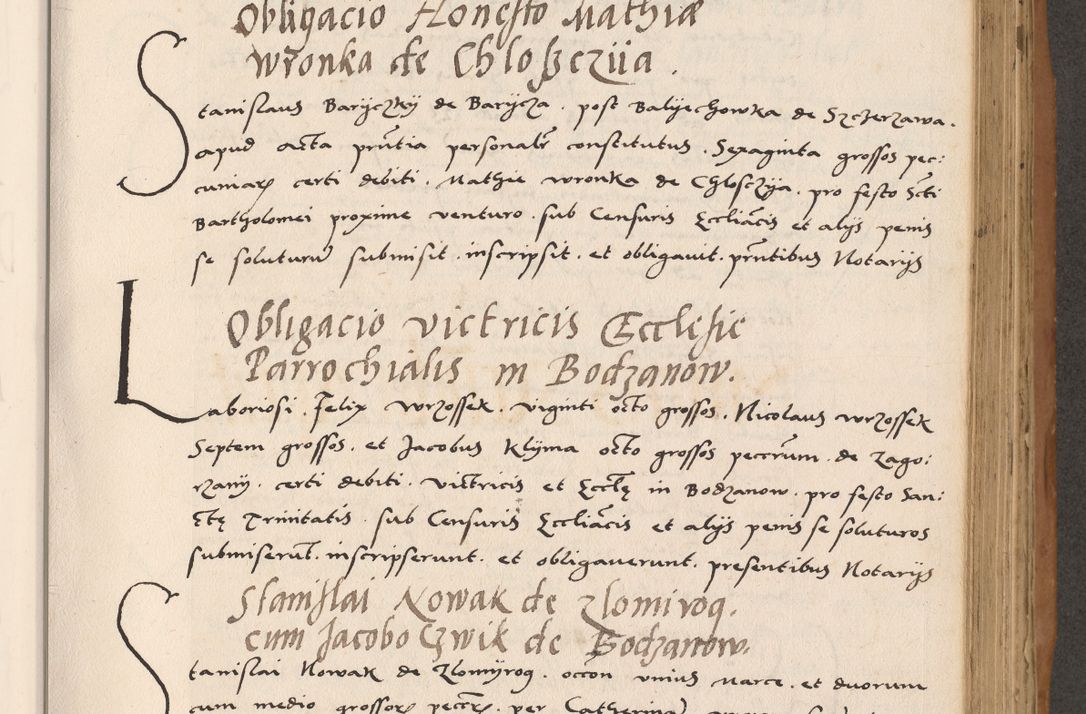 Obligacio Honesto Mathiæ
Wronka de Chlosczÿa .
Stanislaus Barÿczkÿ de Barÿcza . post Balÿechowka de Szczerzawa .
apud acta prñtia personalr̃ constitutus . Sexaginta grossos pec:
cuniaꝝ certi debiti . Mathie wronka de Chlosczÿa . pro festo Scti
Bartholomei proxime venturo . sub Censuris Eccliãcis et alÿs penis
se soluturũ submisit . inscripsit . et obligauit . prñtibus Notarÿs
Obligacio victricis Ecclesie
Parrochialis in Bodzanow.
Laboriosi . Felix wrzossek . viginti octo grossos . Nicolaus wrzossek
Septem grossos . et Jacobus Klÿma octo grossos peccrũm . de Zago:
rzanÿ . certi debiti . victricis et Eccłę in Bodzanow . pro festo San:
ctę Trinitatis . sub Censuris Eccliãcis et alÿs penis se soluturos
submiserũt . inscripserunt . et obligauerunt . presentibus Notarÿs
Stanislai Nowak de Zlomirog .
cum Jacobo Czwik de Bodzanow .
Stanislai Nowak de Zlomÿrog . occõn vnius Marce . et duorum
cum medio grossoꝝ peccrꝝ . per